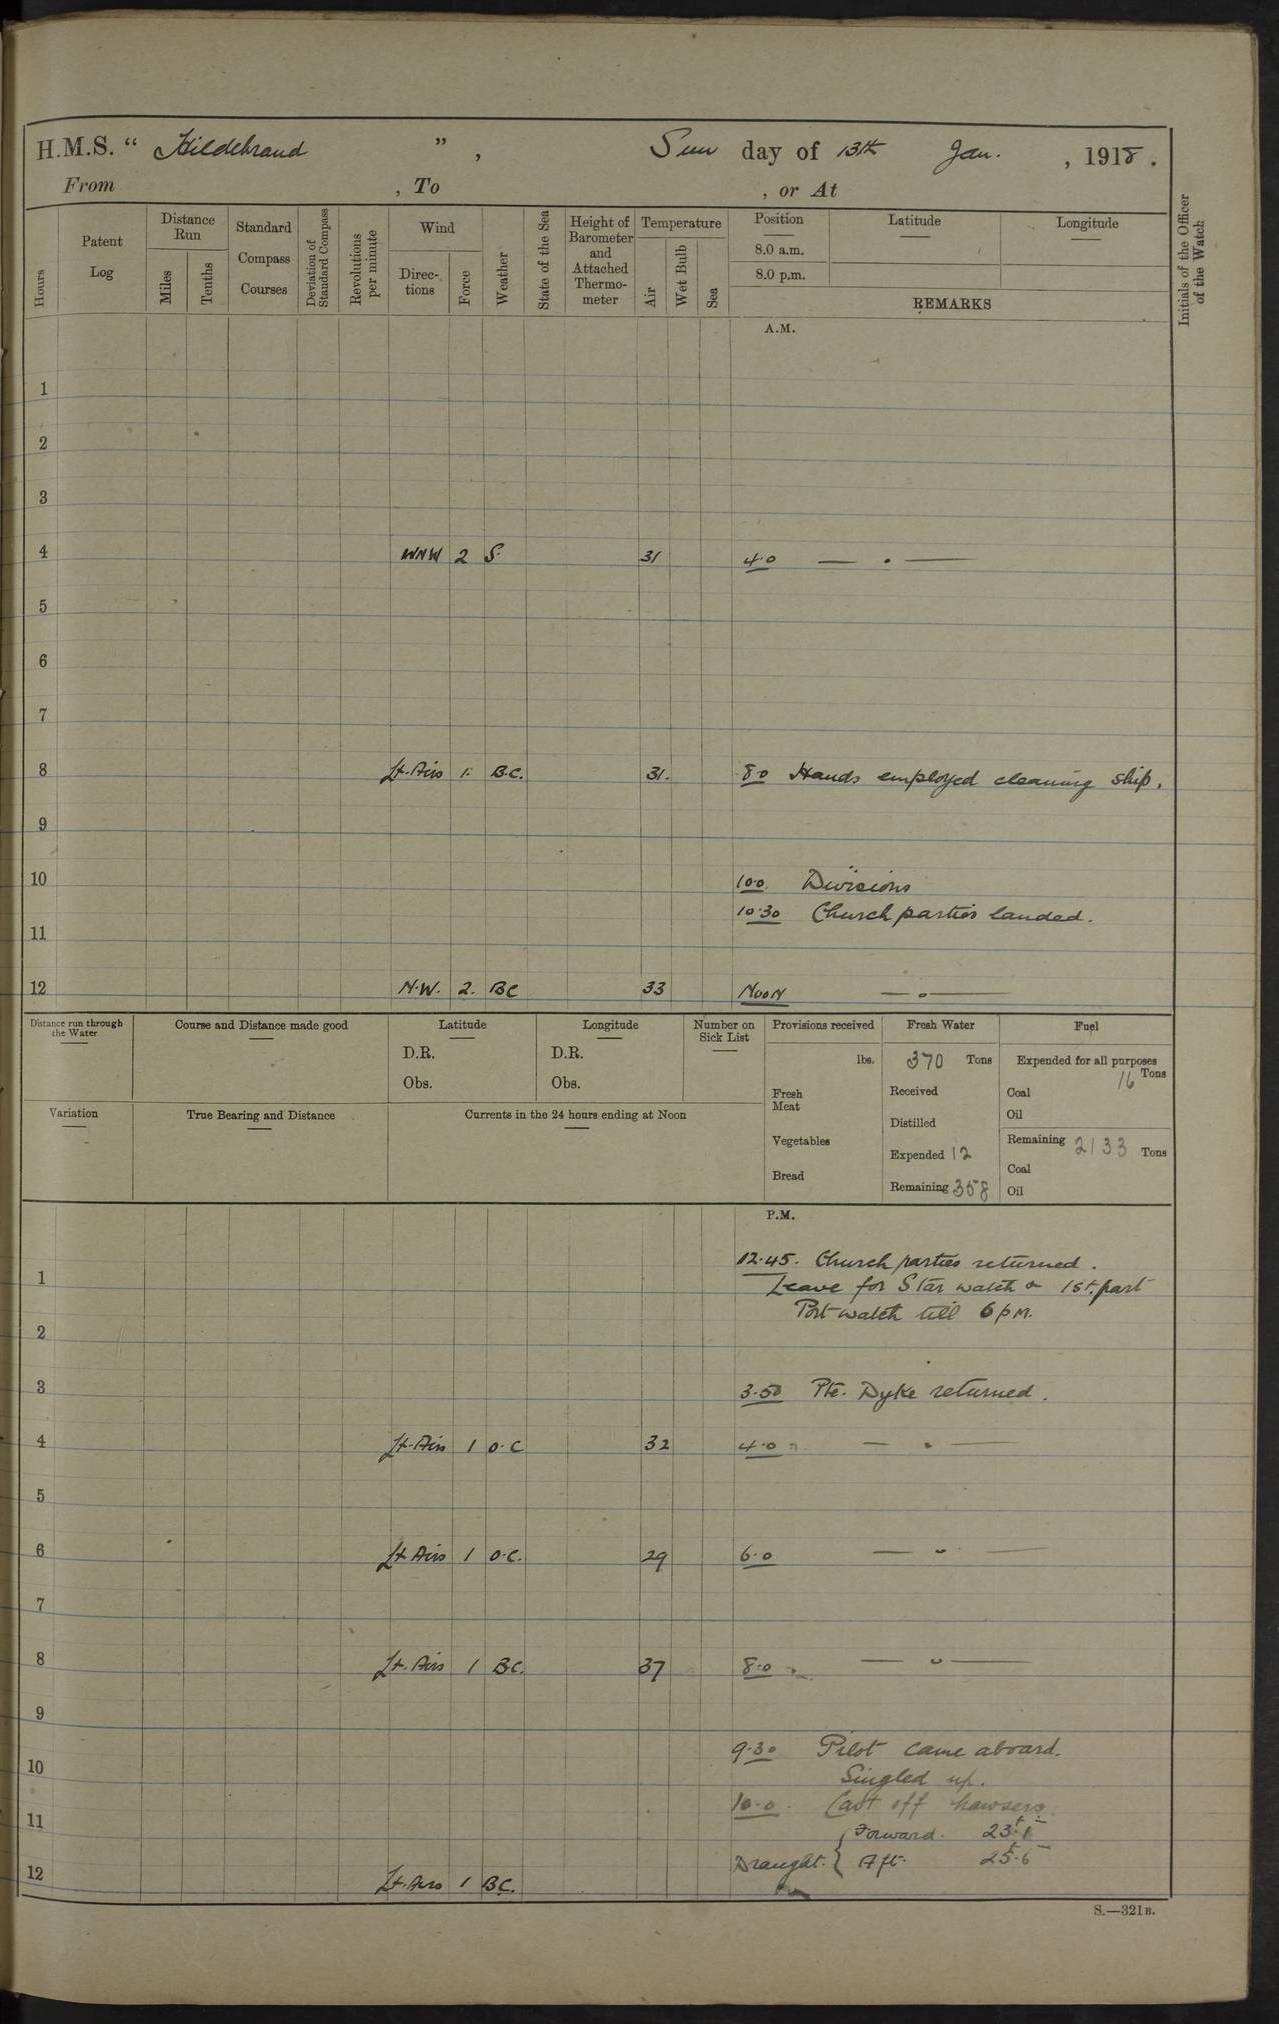 H.M.S. " Hildebrand " , Sun day of 13th Jan. , 1918.
From , To , or At
Hours
Patent Log
Distance Run
Miles
Tenths
Standard Compass Courses
Deviation of Standard Compass
Revolutions per minute
Wind
Direc-tions
Force
Weather
State of the Sea
Height of Barometer and Attached Thermo-meter
Temperature
Air
Wet Bulb
Sea
Position Latitude Longitude
8.0 a.m.
8.0 p.m.
REMARKS
Initials of the Officer of the Watch
A.M.
1
2
3
4 WNW 2 S. 31 4.0 — . —
5
6
7
8 Lt. Airs 1. B.C. 31. 8.0 Hands employed cleaning ship.
9
10 10.0. Divisions
10.30 Church parties landed.
11
12 N.W. 2. BC 33 Noon — . —
Distance run through the Water
Course and Distance made good
Latitude
D.R.
Obs.
Longitude
D.R.
Obs.
Number on Sick List
Provisions received
lbs.
Fresh Meat
Vegetables
Bread
Fresh Water
370 Tons
Received
Distilled
Expended 12
Remaining 358
Fuel
Expended for all purposes
16 Tons
Coal
Oil
Remaining 2133 Tons
Coal
Oil
Variation
True Bearing and Distance
Currents in the 24 hours ending at Noon
P.M.
12.45. Church parties returned.
1 Leave for Star watch & 1st. part
Port watch till 6 PM.
2
3 3.50 Pte. Dyke returned.
4 Lt. Airs 1 O.C 32 4.0 — . —
5
6 Lt Airs 1 O.C. 29 6.0 — . —
7
8 Lt. Airs 1 B.C. 37 8.0 — . —
9
9.30 Pilot came aboard.
10 Singled up.
10.0. Cast off hawsers.
11 Forward. 23.1
Draught. { Aft. 25.6
12 Lt. Airs 1 B.C.
S.—321B.